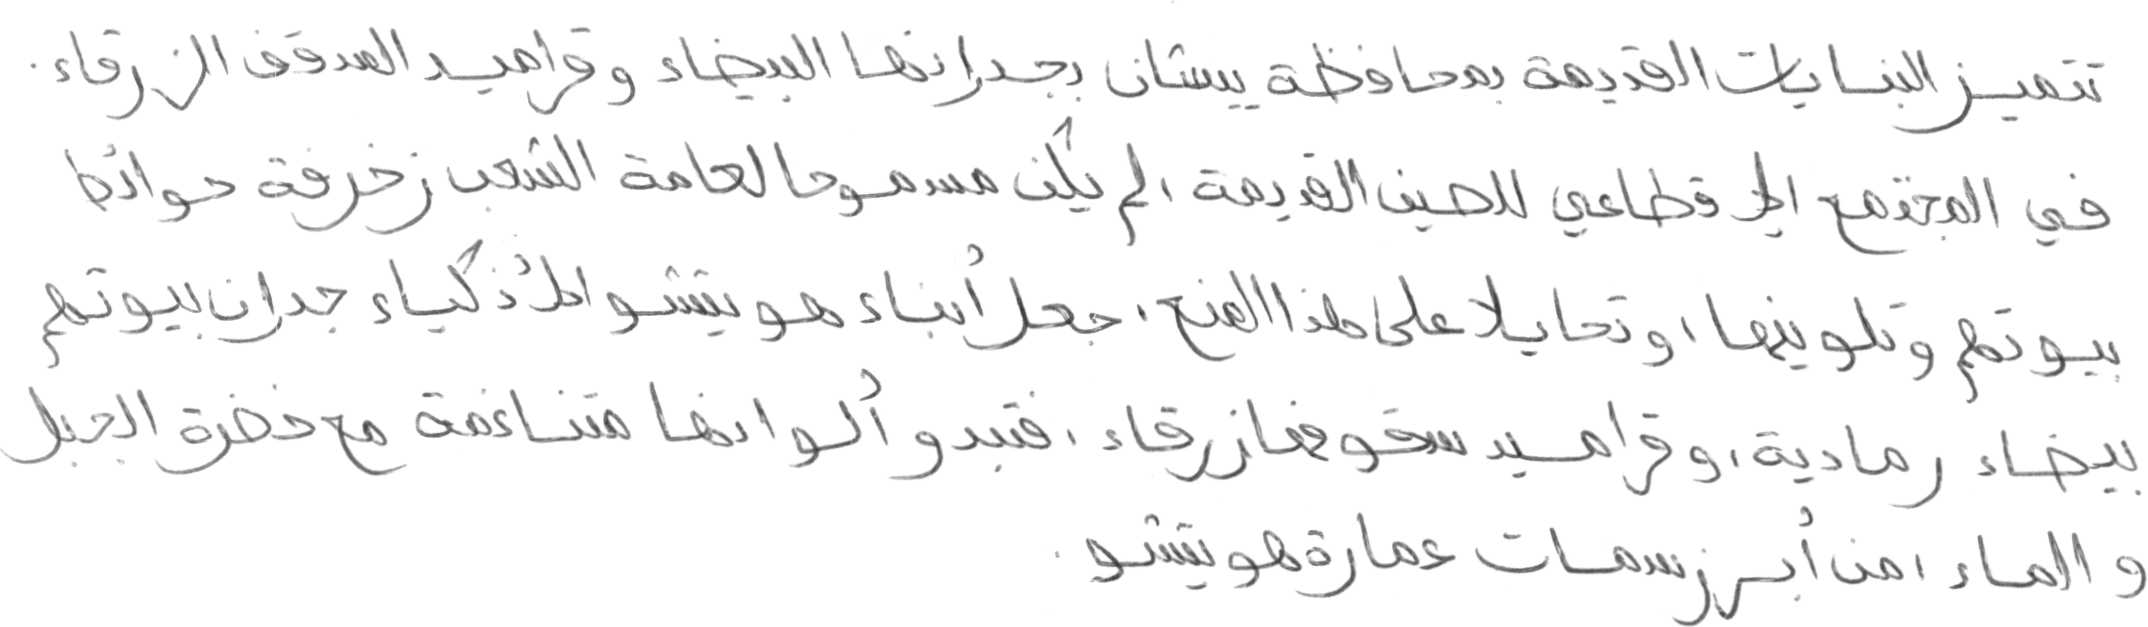 تتميز البنايات القديمة بمحافظة ييشان بجدرانها البيضاء وقراميد السقف الزرقاء.
في المجتمع الإقطاعي للصين القديمة، لم يكن مسموحا لعامة الشعب زخرفة حوائط
بيوتهم وتلوينها، وتحايلا على هذا المنع، جعل أبناء هويتشو الأذكياء جدران بيوتهم
بيضاء رمادية، وقراميد سقوفها زرقاء، فتبدو ألوانها متناغمة مع خضرة الجبل
والماء، من أبرز سمات عمارة هويتشو.